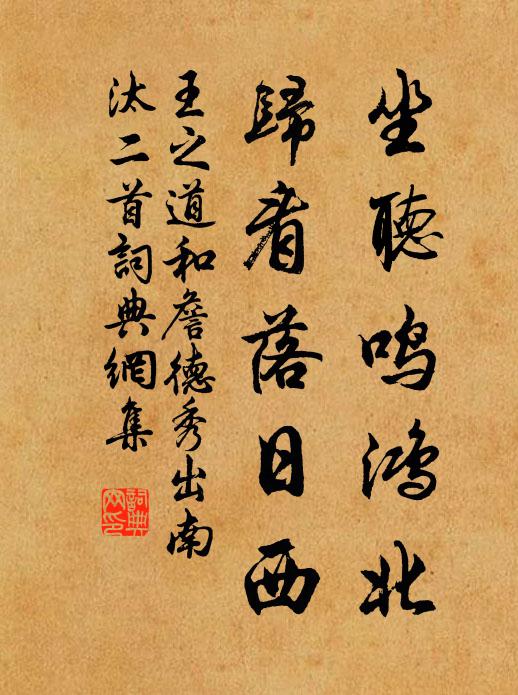 坐聽鳴鴻北
歸看落日西
王之道和詹德秀出南
汰二首詞典網集
詞典網印